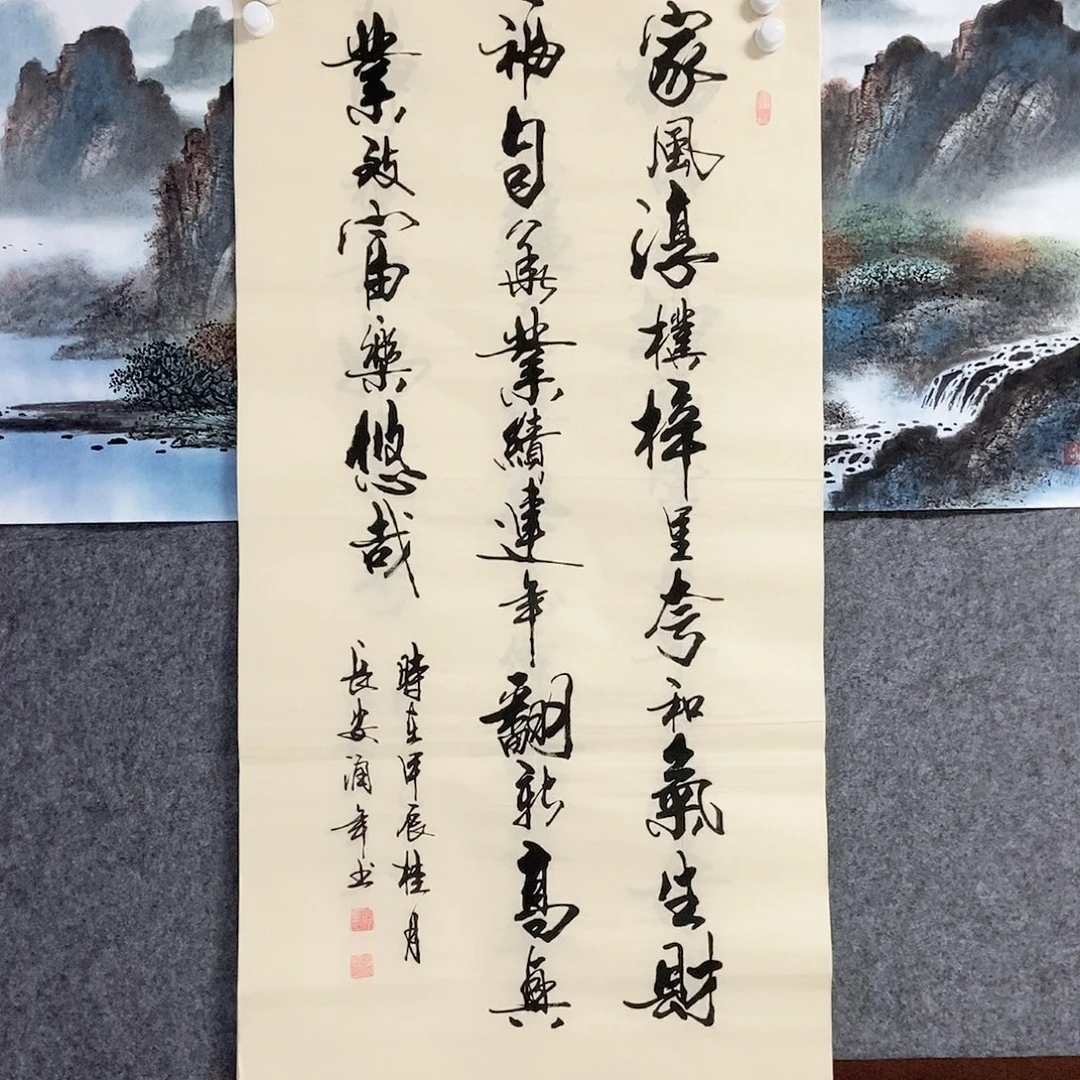 家風淳樸梓里夸和氣生財
福自業績連年翻新高興
業致富樂悠哉
時在甲辰桂月
長安年书